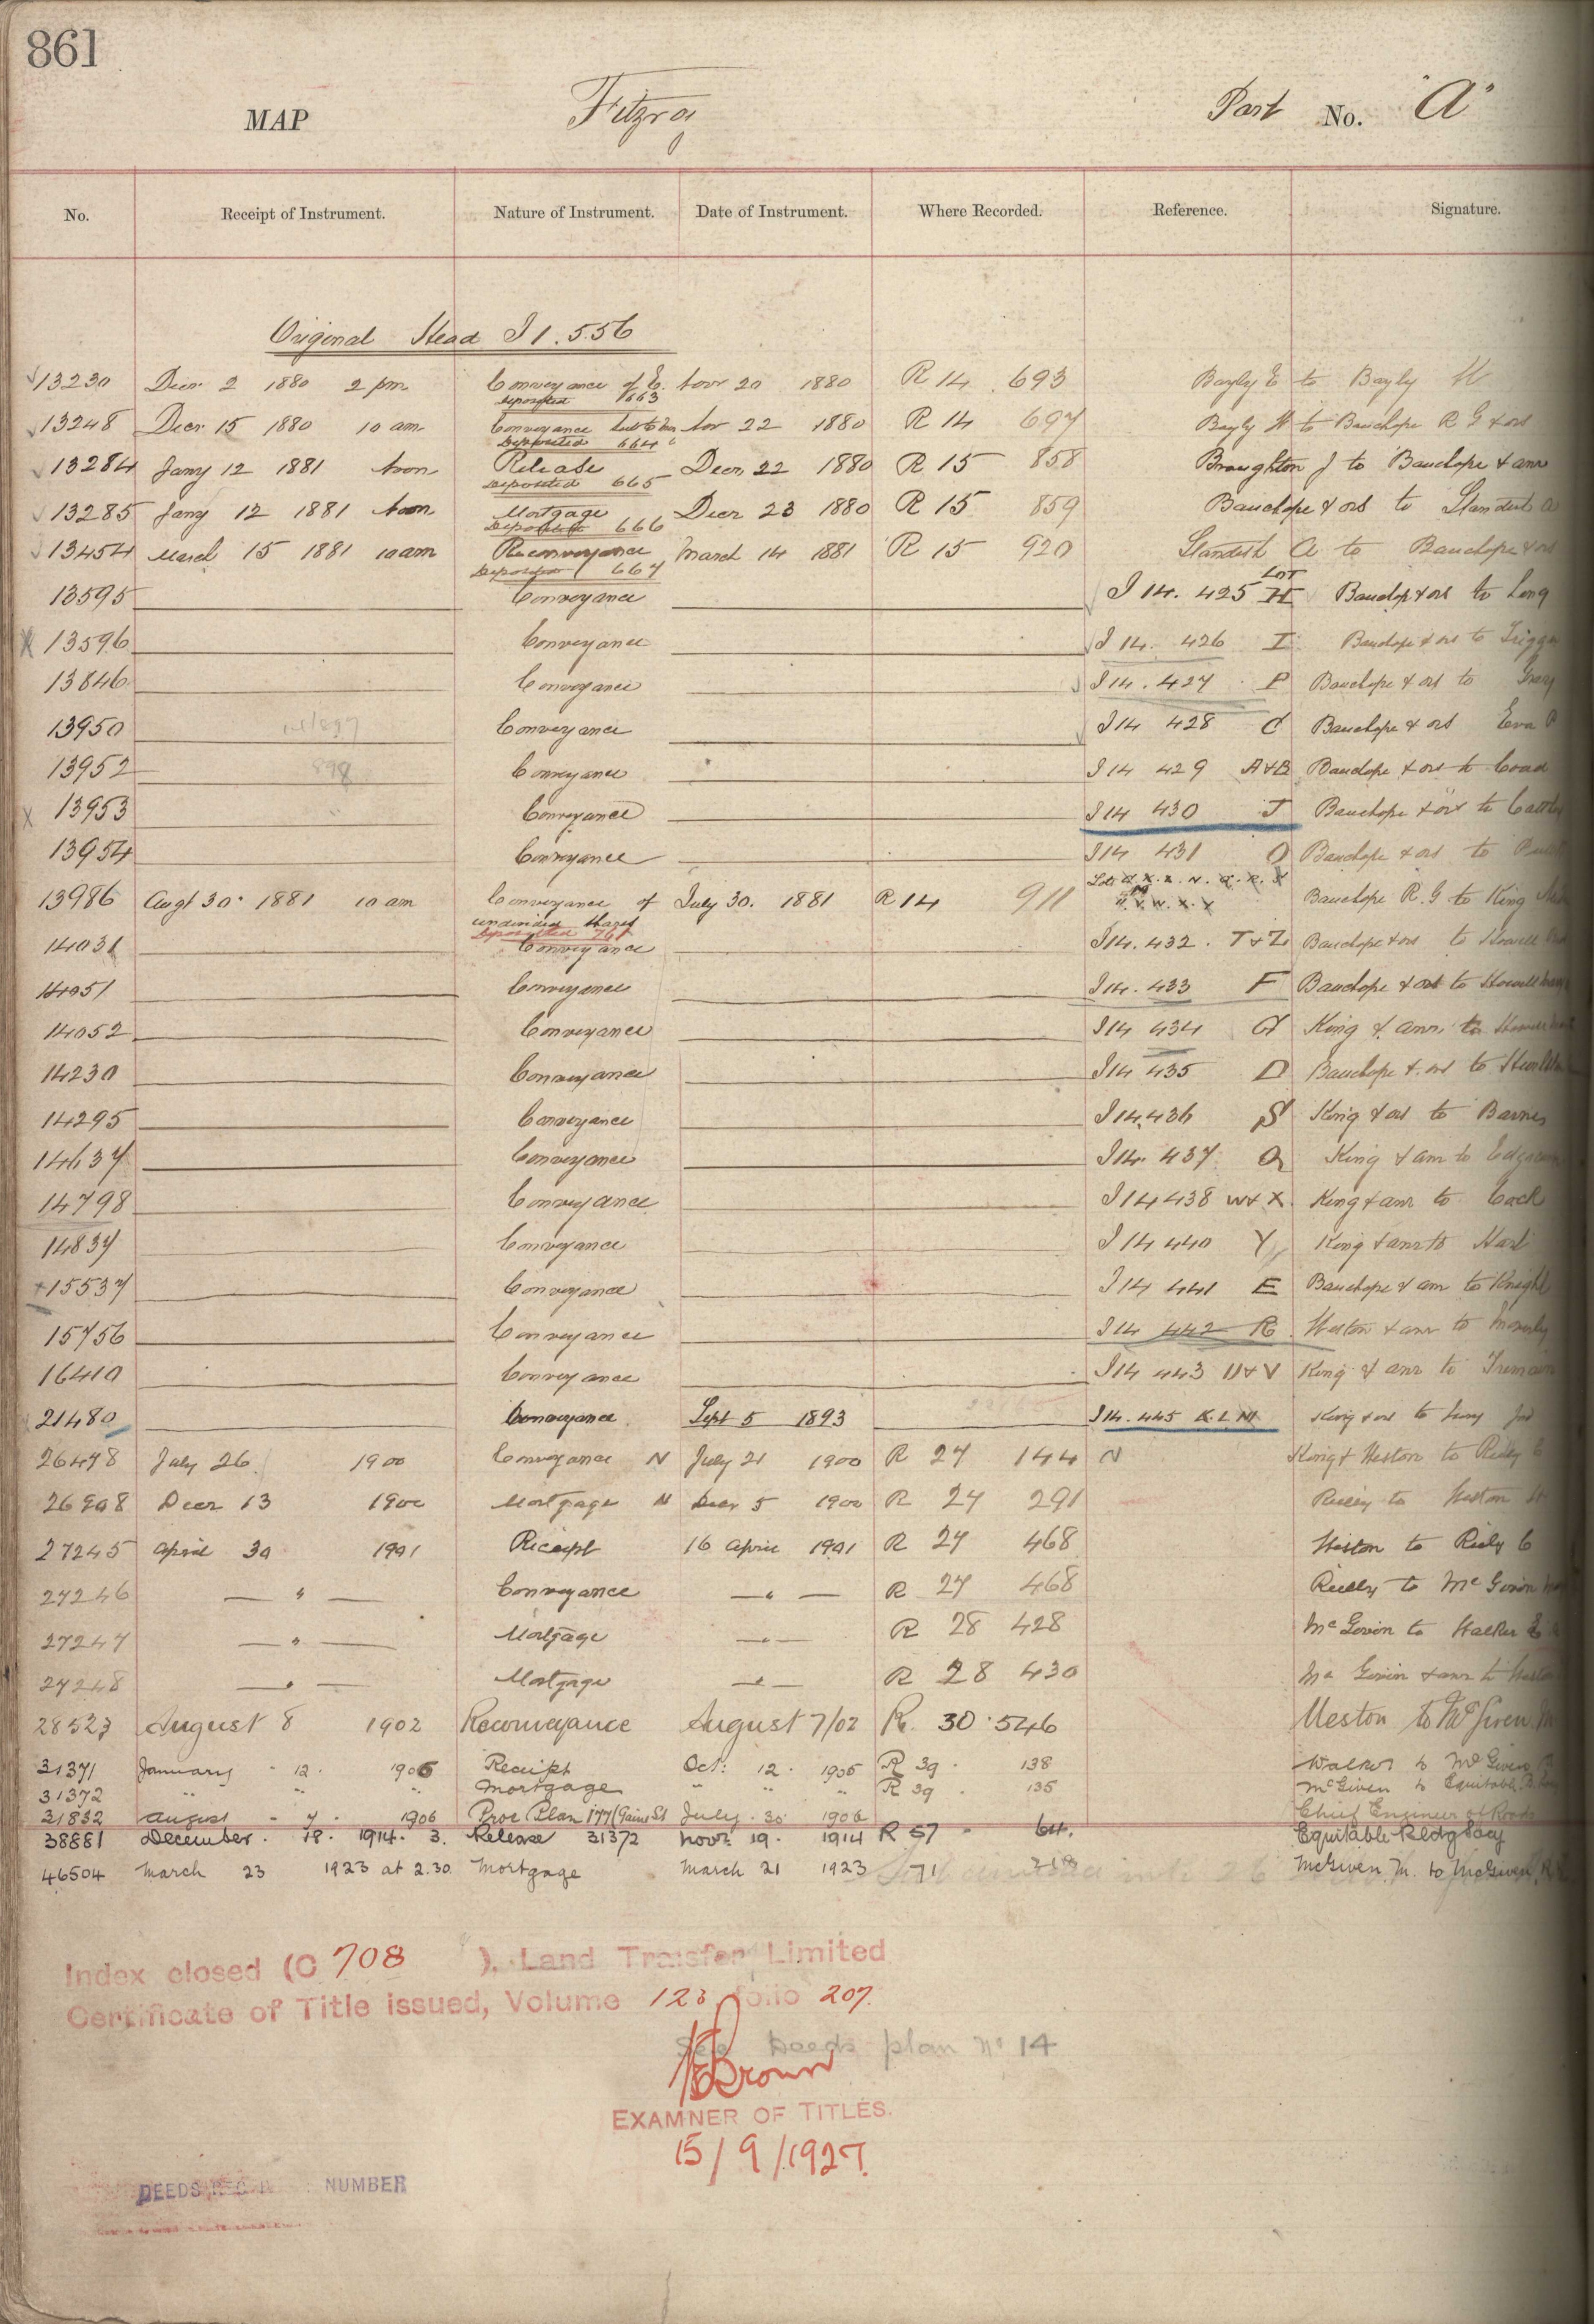 861
MAP Fitzroy Part No. "A"
No. Receipt of Instrument. Nature of Instrument. Date of Instrument. Where Recorded. Reference. Signature.
Original Head I 1. 556
13230 Decr. 2 1880 2 pm Conveyance of E. Novr 20 1880 R 14 693 Bayly E to Bayly H
Deposited 663
13248 Decr. 15 1880 10 am. Conveyance Novr 22 1880 R 14 697 Bayly H to Bauchope R G & ors
Deposited 664
13284 Jany 12 1881 Noon Release Decr. 22 1880 R 15 858 Broughton J to Bauchope & anr
Deposited 665
13285 Jany 12 1881 Noon Mortgage Decr 23 1880 R 15 859 Bauchope & ors to Standish A
Deposited 666
13454 March 15 1881 10 am Reconveyance March 14 1881 R 15 920 Standish A to Bauchope & ors
Deposited 667
13595 Conveyance I 14. 425 Lot H Bauchope & ors to Long
13596 Conveyance I 14. 426 I Bauchope & ors to
13846 Conveyance I 14. 427 P Bauchope & ors to
13950 Conveyance I 14 428 C Bauchope & ors
13952 Conveyance I 14 429 A & B Bauchope & ors to
13953 Conveyance I 14 430 J Bauchope & ors to
13954 Conveyance I 14 431 O Bauchope & ors to
13986 Augt 30. 1881 10 am Conveyance of July 30. 1881 R 14 911 Bauchope R. G to King
undivided shares
Deposited 761
14031 Conveyance I 14. 432. T & Z Bauchope & ors to
14051 Conveyance I 14. 433 F Bauchope & ors to
14052 Conveyance I 14 434 G King & anr. to
14230 Conveyance I 14 435 D Bauchope & ors to
14295 Conveyance I 14. 436 S King & ors to Barnes
14637 Conveyance I 14. 437 Q King & anr to
14798 Conveyance I 14 438 W & X. King & anr to Cock
14837 Conveyance I 14 440 Y King & anr to Hart
15537 Conveyance I 14 441 E Bauchope & anr to Knight
15756 Conveyance I 14 442 R Weston & anr to
16410 Conveyance I 14 443 U & V King & anr to
21480 Conveyance Sept 5 1893 I 14. 445 K. L. M King & ors to
26478 July 26. 1900 Conveyance N July 21 1900 R 27 144 N King & Weston to Reily
26908 Decr 13 1900 Mortgage N Decr 5 1900 R 27 291 Reily to Weston
27245 April 30 1901 Receipt 16 April 1901 R 27 468 Weston to Reily C
27246 " Conveyance " R 27 468 Reily to McGivin
27247 " Mortgage " R 28 428 McGivin to Walker
27248 " Mortgage " R 28 430 McGivin & anr to Weston
28523 August 8 1902 Reconveyance August 7/02 R. 30. 546 Weston to McGiven
31371 January 12. 1906 Receipt Oct. 12. 1905 R 39 138 Walker to McGiven
31372 " " " Mortgage " " " R 39 135 McGiven to Equitable B
31832 August 7. 1906 Proc Plan 177 July 30 1906 Chief Engineer of Roads
38881 December. 18. 1914. 3. Release 31372 Novr. 19. 1914 R 57 64. Equitable Bldg Socy
46504 March 23 1923 at 2.30. Mortgage March 21 1923 71 218 McGiven. M. to McGiven,
Index closed (C 708 ). Land Transfer Limited
Certificate of Title issued, Volume 123 folio 207.
See Deeds plan No 14
Brown
EXAMINER OF TITLES.
15/9/1927.
DEEDS NUMBER